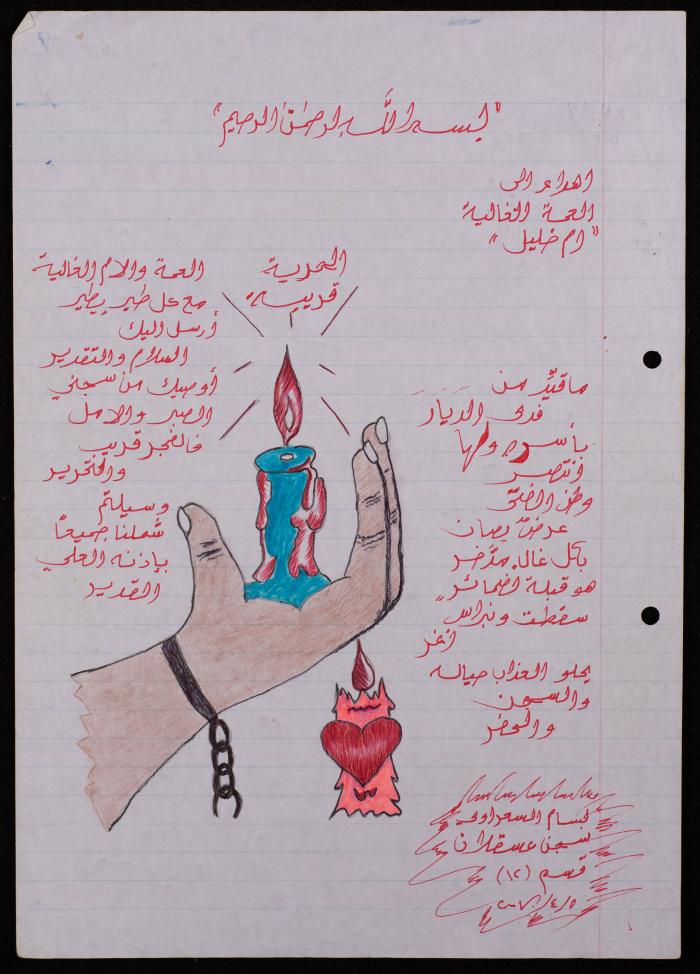 "بسم الله الرحمن الرحيم"
اهداء الى
العمة الغالية
"ام خليل"
الحرية
قريبة
العمة والام الغالية
مع كل طير يطير
أرسل اليك
السلام والتقدير
أوصيك من سجني
الصبر والامل
فالفجر قريب
والتحرير
وسيلتم
شملنا جميعاً
بإذنه العلي
القدير
ما قيّد من
فدى الديار
بأسره ولها
انتصر
وطن الضحى
عرضٌ يصان
بكل غالٍ مدّخر
هو قبلة الضمائر
سقطت ونبراس
اغر
يحلو العذاب حياله
والسجن
والخطر
بسام السعراوي
سجن عسقلان
قسم (١٢)